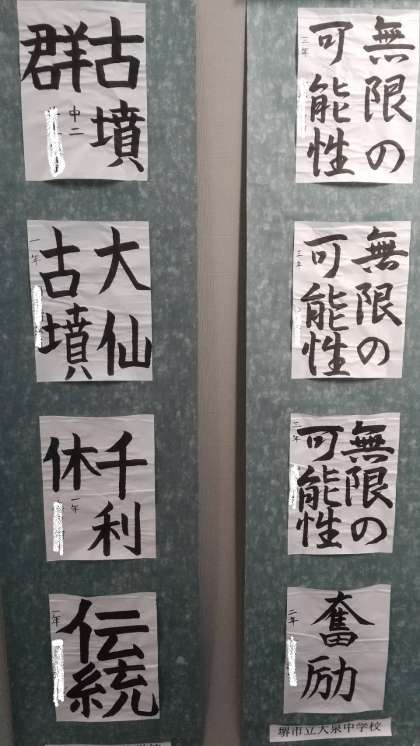 無限の
可能性
三年
無限の
可能性
三年
無限の
可能性
三年
奮励
二年
堺市立大泉中学校
古墳
群
中二
大仙
古墳
一年
千利
休
一年
伝統
一年